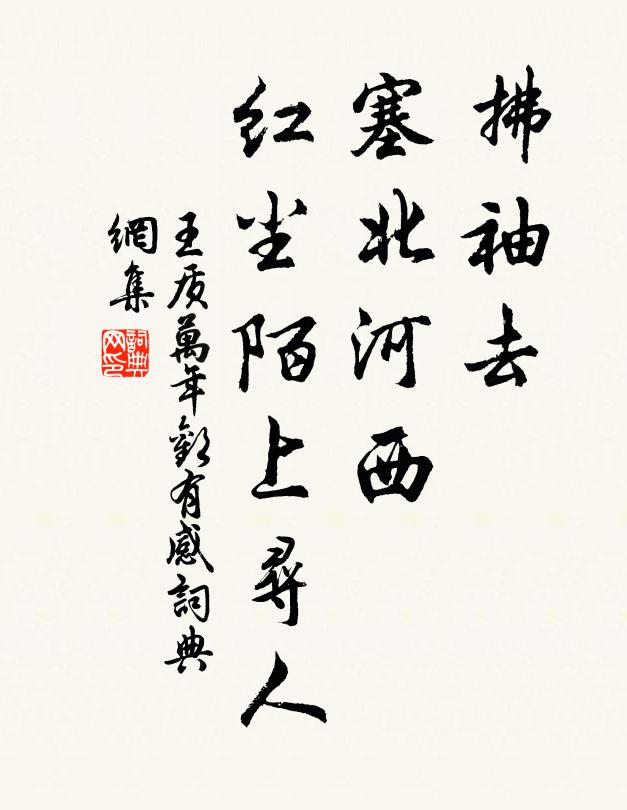 拂袖去
塞北河西
红尘陌上尋人
王质萬年歡有感詞典
網集
詞典
网印